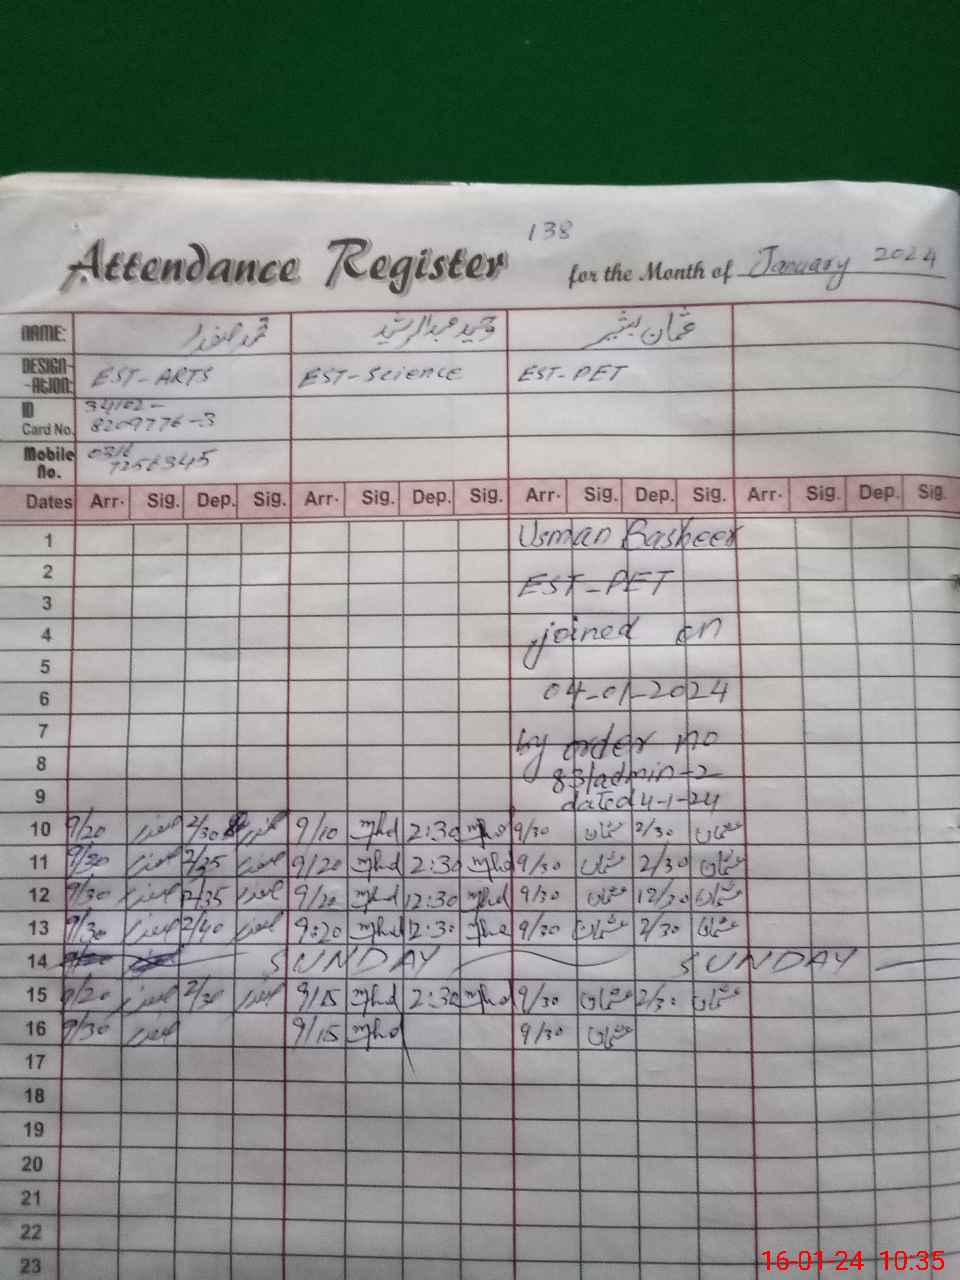 138
Attendance Register for the Month of January 2024
NAME: محمد صفدر وحید عبدالرشید عثمان بشیر
DESIGN-ATION: EST-ARTS EST-Science EST-PET
ID Card No. 34102-
8209776-3
Mobile No.
Dates Arr. Sig. Dep. Sig. Arr. Sig. Dep. Sig. Arr. Sig. Dep. Sig. Arr. Sig. Dep. Sig.
1 Usman Basheer
2
3 EST-PET
4 joined on
5
6 04-01-2024
7
8 by order no
83/admin-2
9 dated 4-1-24
10 9/20 صفدر 2/30 صفدر 9/10 mhd 2:30 mhd 9/30 عثمان 2/30 عثمان
11 9/30 صفدر 2/35 صفدر 9/20 mhd 2:30 mhd 9/30 عثمان 2/30 عثمان
12 9/30 صفدر 2/35 صفدر 9/20 mhd 12:30 mhd 9/30 عثمان 12/30 عثمان
13 9/30 صفدر 2/40 صفدر 9:20 mhd 12:30 mhd 9/30 عثمان 2/30 عثمان
14 SUNDAY SUNDAY
15 9/20 صفدر 2/30 صفدر 9/15 mhd 2:30 mhd 9/30 عثمان 2/30 عثمان
16 9/30 صفدر 9/15 mhd 9/30 عثمان
17
18
19
20
21
22
23
16-01-24 10:35